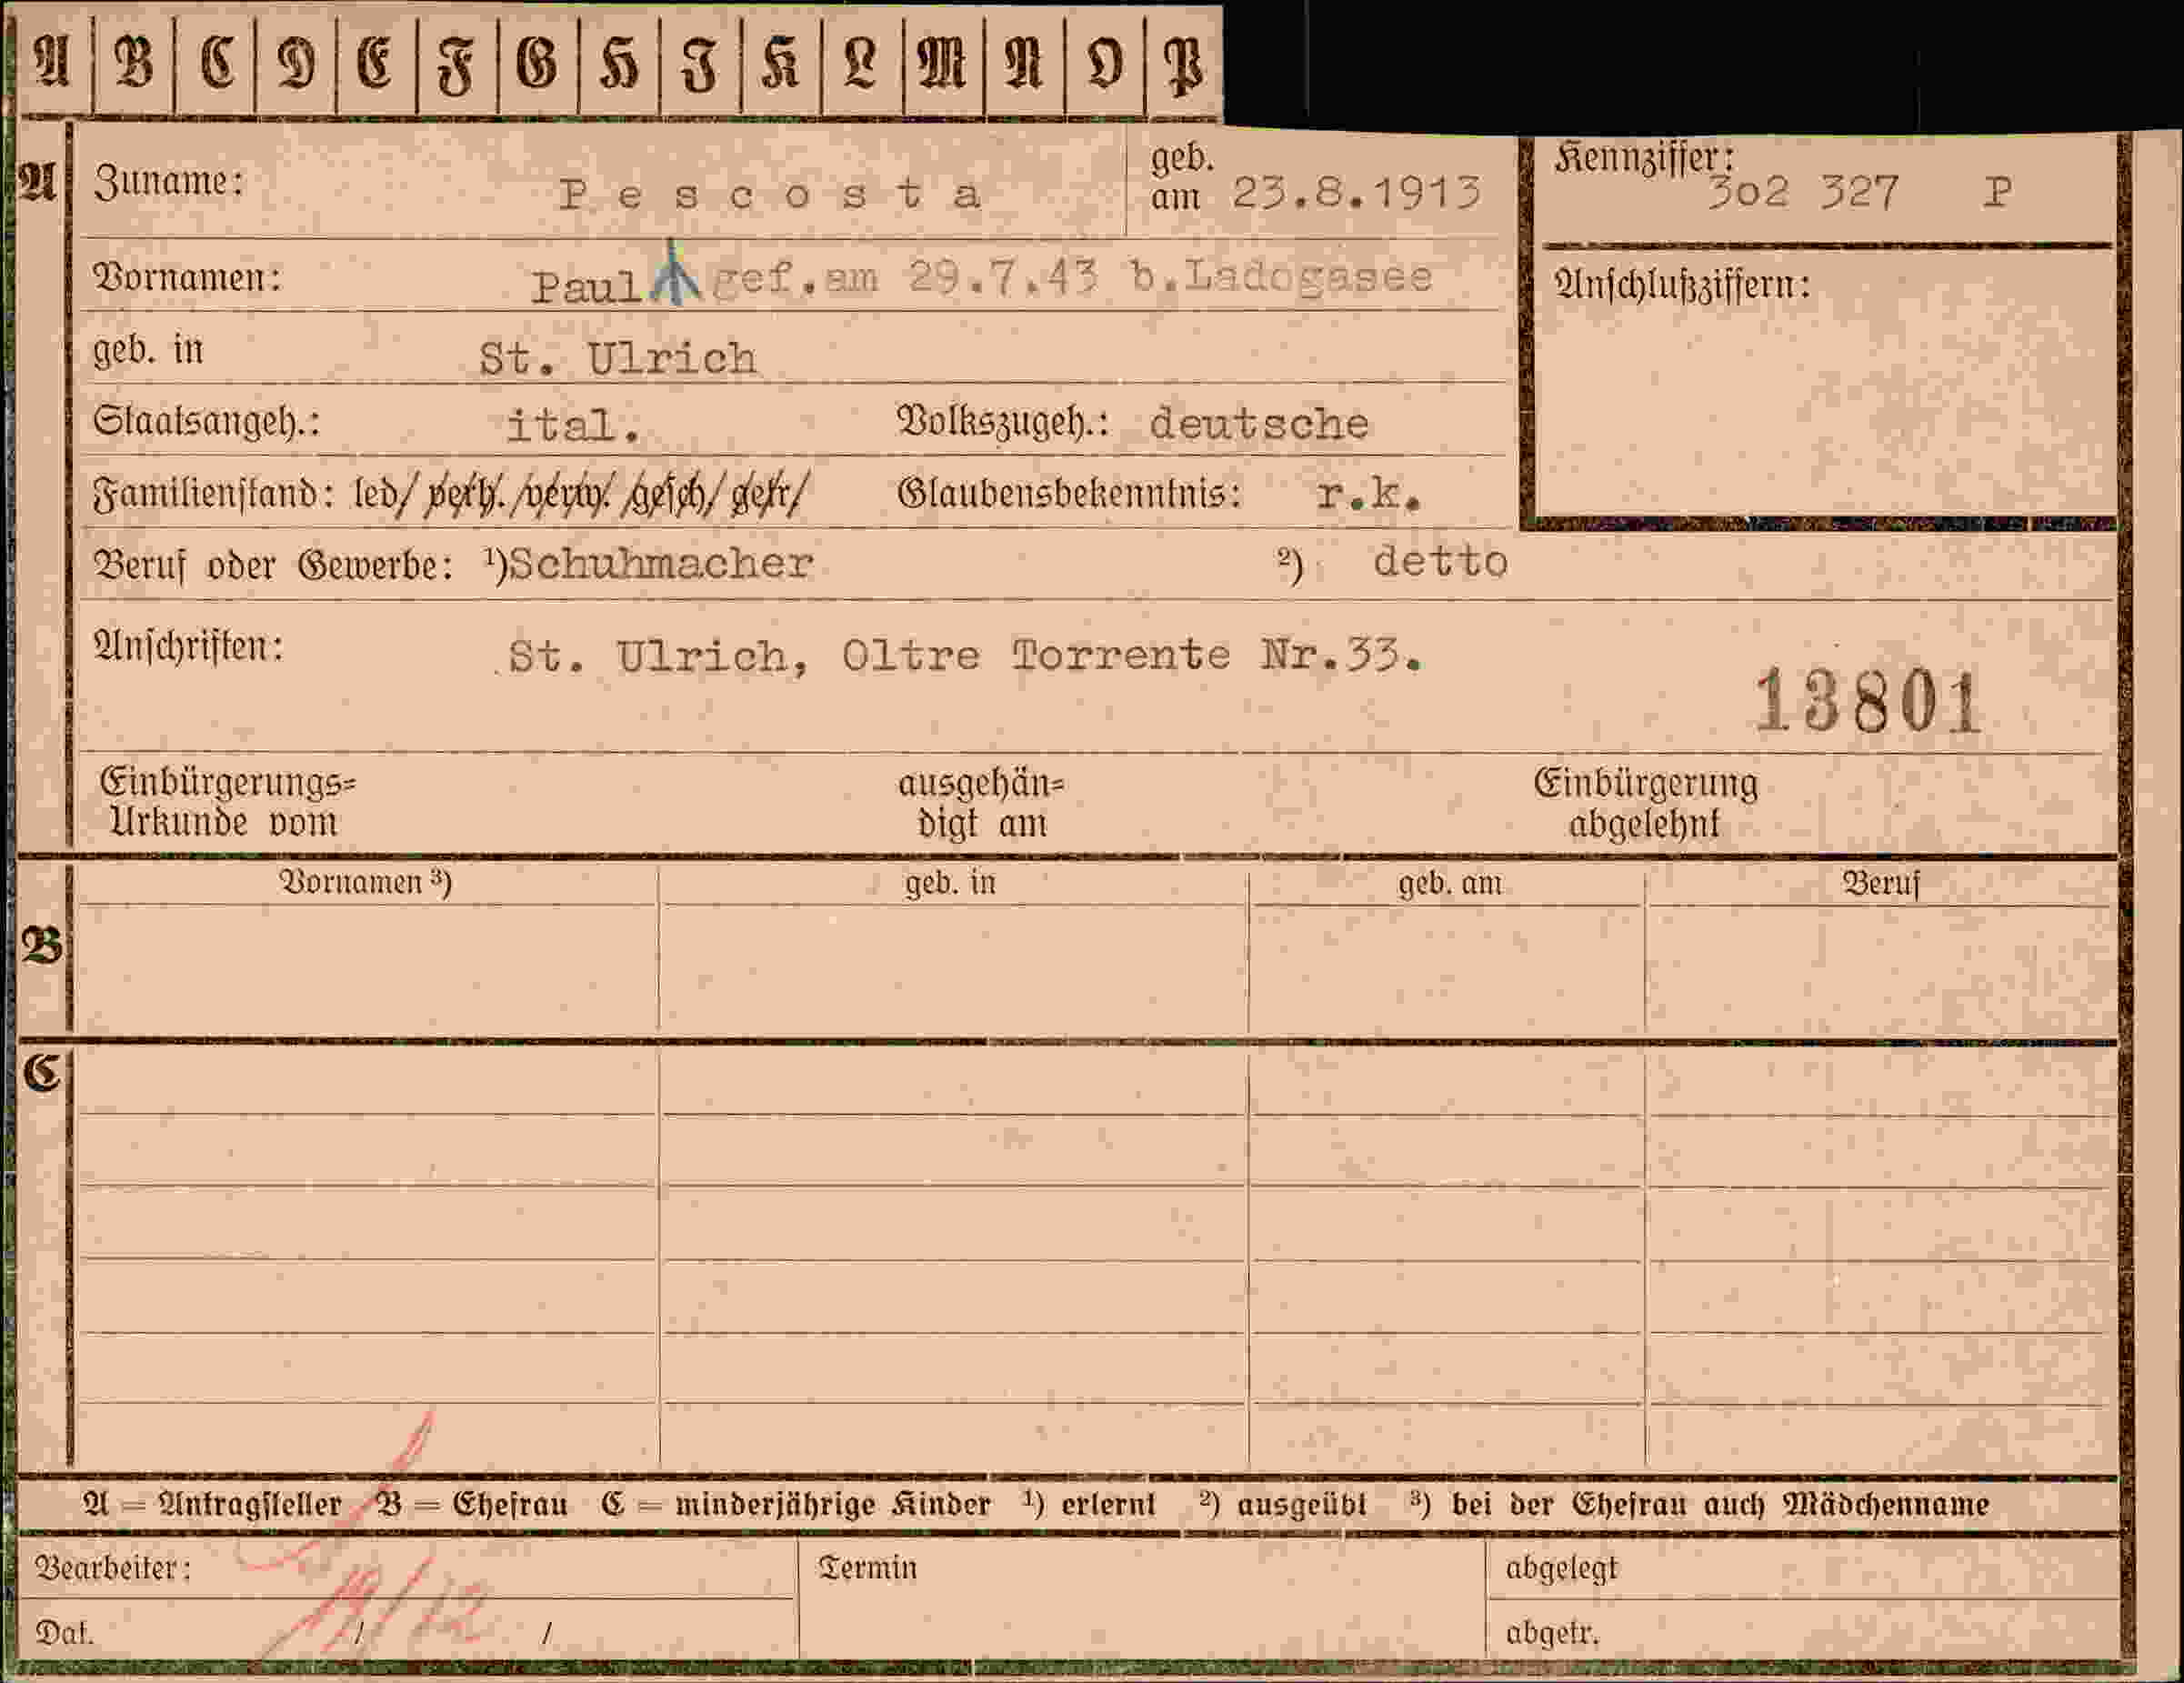 A B C D E F G H I K L M N O P
A
Zuname: Pescosta
geb. am 23.8.1913
Kennziffer: 302 327 P
Vornamen: Paul gef.am 29.7.43 b.Ladogasee
Anschlußziffern:
geb. in St. Ulrich
Staatsangeh.: ital. Volkszugeh.: deutsche
Familienstand: led/ verh. /verw. /gesch/ getr/ Glaubensbekenntnis: r.k.
Beruf oder Gewerbe: ¹)Schuhmacher ²) detto
Anschriften: St. Ulrich, Oltre Torrente Nr.33.
13801
Einbürgerungs= ausgehän= Einbürgerung
Urkunde vom digt am abgelehnt
B
Vornamen ³) geb. in geb. am Beruf
C
A = Antragsteller B = Ehefrau C = minderjährige Kinder ¹) erlernt ²) ausgeübt ³) bei der Ehefrau auch Mädchenname
Bearbeiter: Termin abgelegt
Dat. 19/12 / / abgetr.